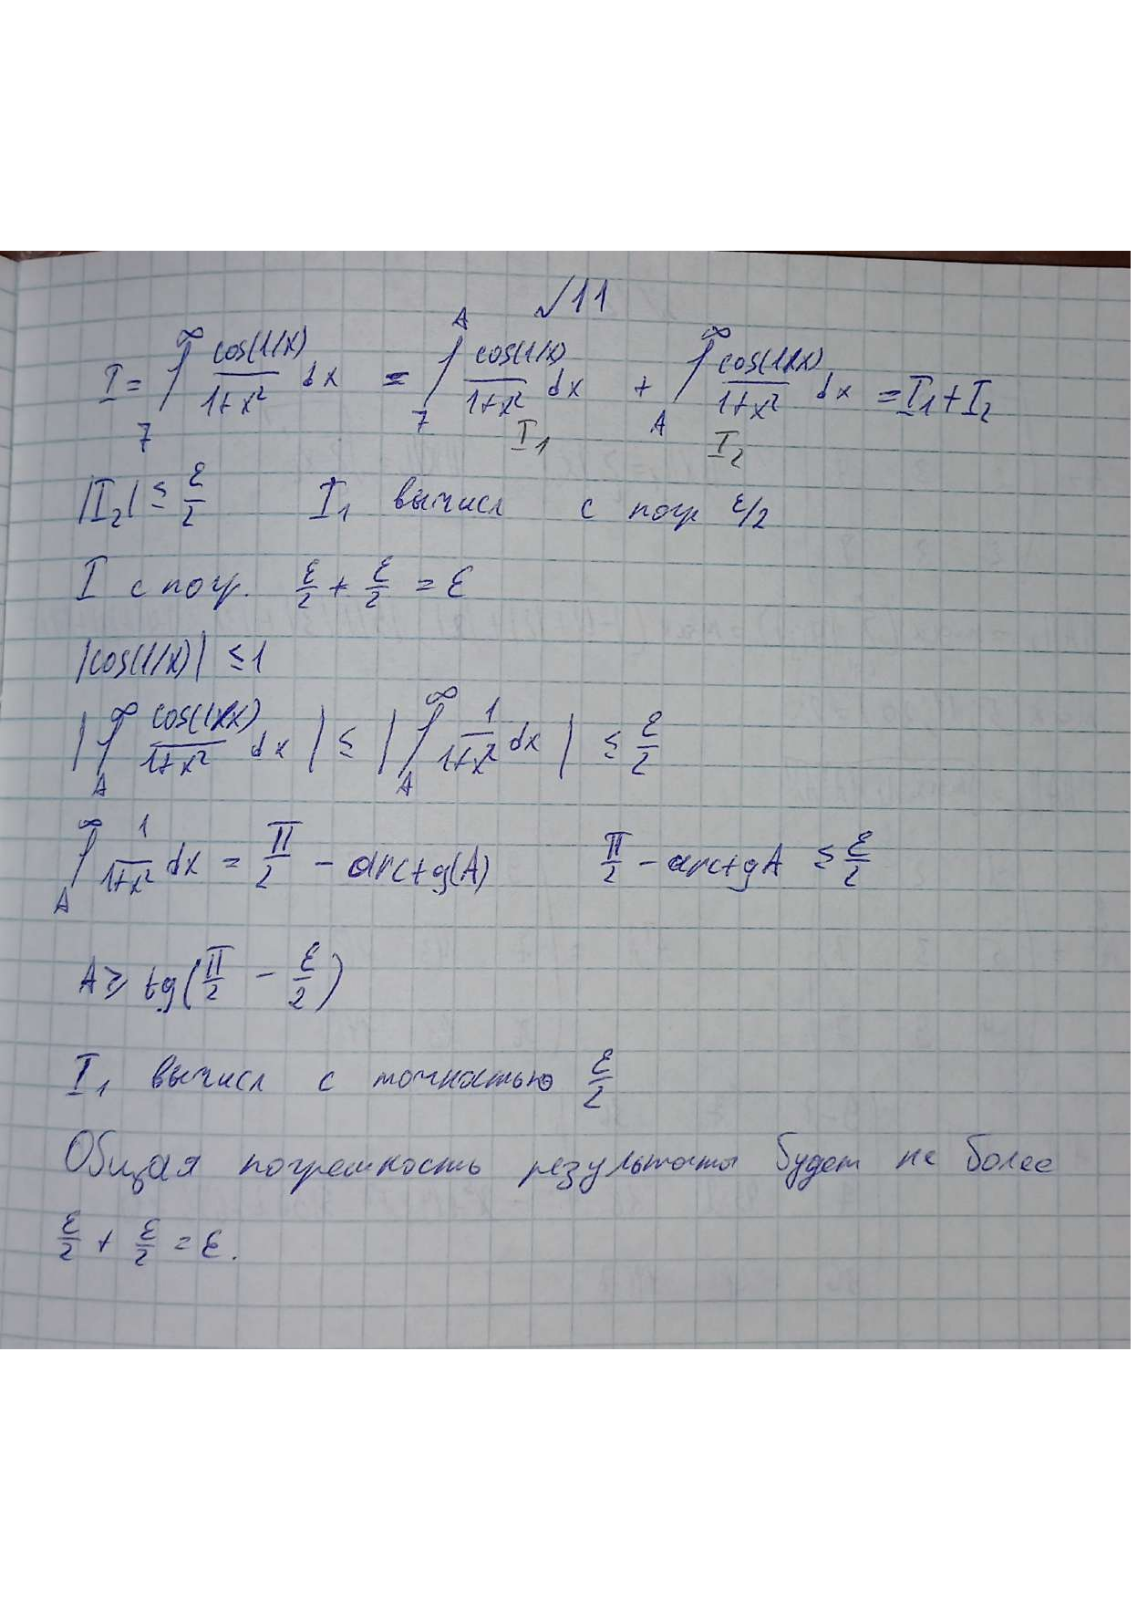 √11
I = ∫₇^∞ cos(1/x)/(1+x²) dx = ∫₇^A cos(1/x)/(1+x²) dx + ∫_A^∞ cos(1/x)/(1+x²) dx = I₁ + I₂
I₁ I₂
|I₂| ≤ ε/2 I₁ вычисл с погр ε/2
I с погр. ε/2 + ε/2 = ε
|cos(1/x)| ≤ 1
|∫_A^∞ cos(1/x)/(1+x²) dx| ≤ |∫_A^∞ 1/(1+x²) dx| ≤ ε/2
∫_A^∞ 1/(1+x²) dx = π/2 - arctg(A) π/2 - arctgA ≤ ε/2
A ≥ tg(π/2 - ε/2)
I₁ вычисл с точностью ε/2
Общая погрешность результата будет не более
ε/2 + ε/2 = ε.